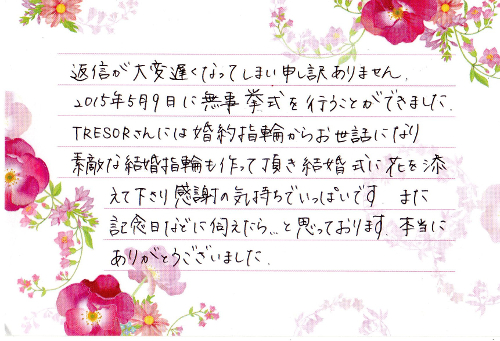 返信が大変遅くなってしまい申し訳ありません.
2015年5月9日に無事挙式を行うことができました.
TRESORさんには婚約指輪からお世話になり
素敵な結婚指輪も作って頂き結婚式に花を添
えて下さり感謝の気持ちでいっぱいです. また
記念日などに伺えたら...と思っております. 本当に
ありがとうございました.